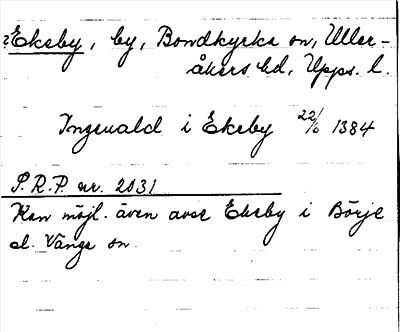 ?Ekeby, by, Bondkyrka sn, Uller-
åkers hd, Upps. l.
Ingevald i Ekeby 22/10 1384
S.R.P. nr. 2031
Kan möjl. även avse Ekeby i Börje
el. Vänge sn.